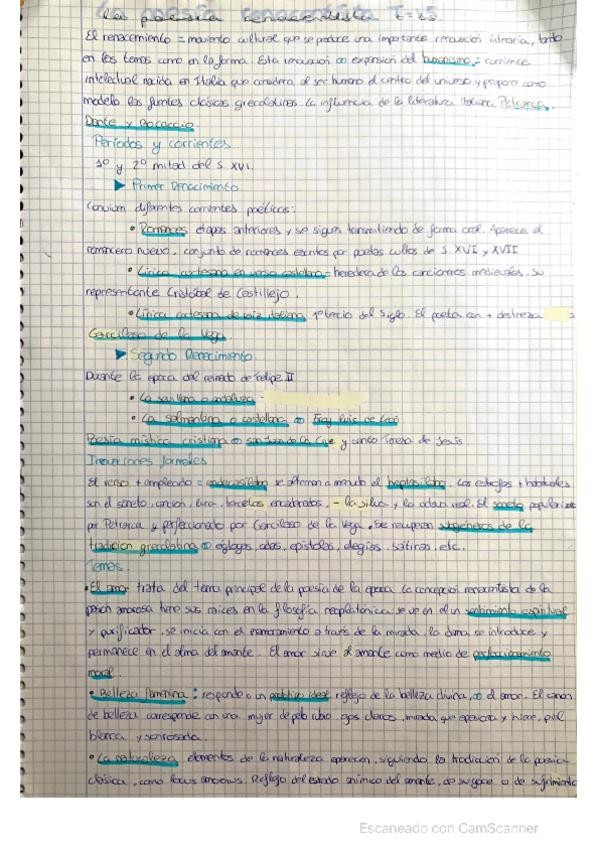 La poesía renacentista T-15
El renacimiento = movimiento cultural que se produce una importante renovación literaria, tanto
en los temas como en la forma. Esta renovación es expresión del humanismo = corriente
intelectual nacida en Italia que considera al ser humano el centro del universo y propone como
modelo las fuentes clásicas grecolatinas. La influencia de la literatura italiana Petrarca,
Dante y Bocaccio.
Períodos y corrientes
1º y 2º mitad del s. XVI.
Primer Renacimiento
Conviven diferentes corrientes poéticas:
• Romances etapas anteriores y se siguen transmitiendo de forma oral. Aparece el
romancero nuevo, conjunto de romances escritos por poetas cultos de s. XVI y XVII
• Lírica cortesana en verso castellano = heredera de los cancioneros medievales. Su
representante Cristóbal de Castillejo.
• Lírica cortesana de raíz italiana 1º tercio del siglo. El poeta con + destreza
Garcilaso de la Vega
Segundo Renacimiento
Durante la época del reinado de Felipe II
• La sevillana o andaluza -
• La salmantina o castellana Fray Luis de León
Poesía mística cristiana San Juan de la Cruz y Santa Teresa de Jesús
Inovaciones formales
El verso + empleado = endecasílabo se alternan a menudo el heptasílabo. Las estrofas + habituales
son el soneto, canción, lira, tercetos encadenados, - la silva y la octava real. El soneto
por Petrarca y perfeccionado por Garcilaso de la Vega, se recuperan subgéneros de la
tradición grecolatina églogas, odas, epístolas, elegías, sátiras, etc.
Temas.
• El amor trata del tema principal de la poesía de la época. La concepción renacentista de la
pasión amorosa tiene sus raíces en la filosofía neoplatónica: se ve en él un sentimiento espiritual
y purificador, se inicia con el enamoramiento a través de la mirada, la dama se introduce y
permanece en el alma del amante. El amor sirve al amante como medio de perfeccionamiento
moral.
• Belleza femenina: responde a un prototipo ideal reflejo de la belleza divina, el amor. El canon
de belleza corresponde con una mujer de pelo rubio, ojos claros, mirada que apasiona y hiere, piel
blanca y sonrosada.
• La naturaleza elementos de la naturaleza aparecen, siguiendo la tradición de la poesía
clásica, como locus amoenus. Reflejo del estado anímico del amante, de su goce o de sufrimiento
Escaneado con CamScanner